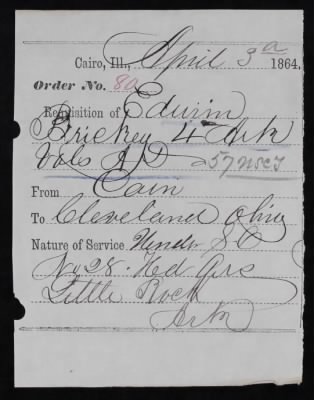 Cairo, Ill., April 3d 1864.
Order No. 80
Requisition of Edwin
Brickey 4 Ark
Vols AD 57 USCI
From Cairo
To Cleveland Ohio
Nature of Service Under S.O
No 28 Hd Qrs
Little Rock
Ark